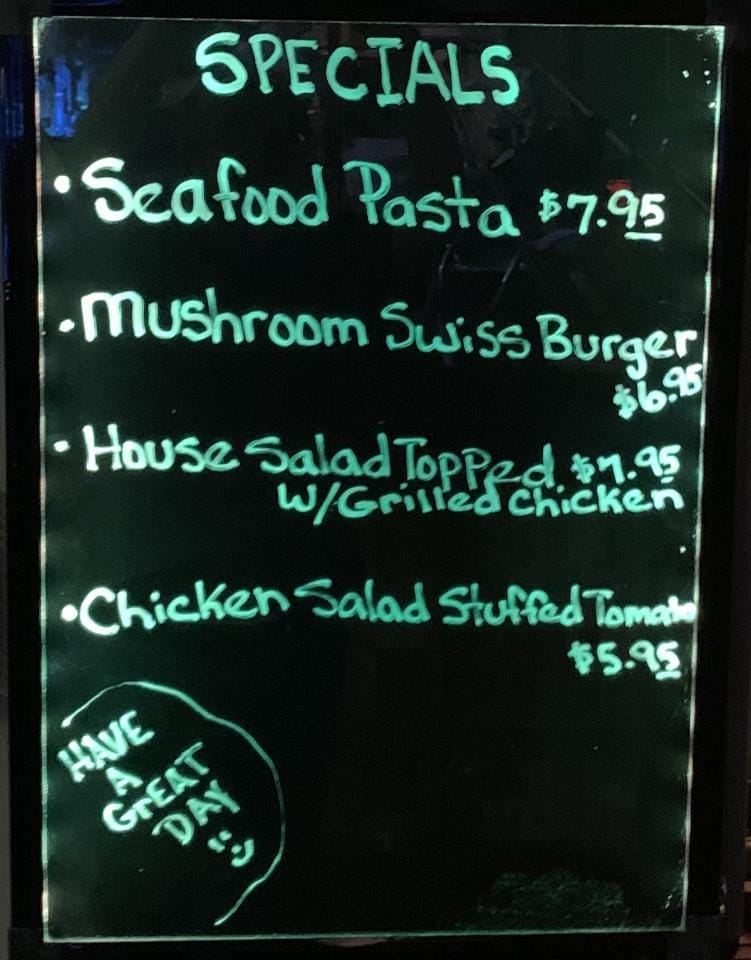 SPECIALS
• Seafood Pasta $7.95
• Mushroom Swiss Burger
$6.95
• House Salad Topped $7.95
W/Grilled Chicken
• Chicken Salad Stuffed Tomato
$5.95
HAVE
A
GREAT
DAY
:)